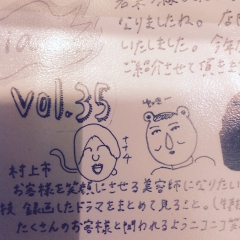 なりましたね。店
いたしました。今年
ご紹介させて頂き
vol.35
村上市
お客様を笑顔にさせる美容師になりたい
録画したドラマをまとめて見ること。
たくさんのお客様と関われるようニコニコ笑